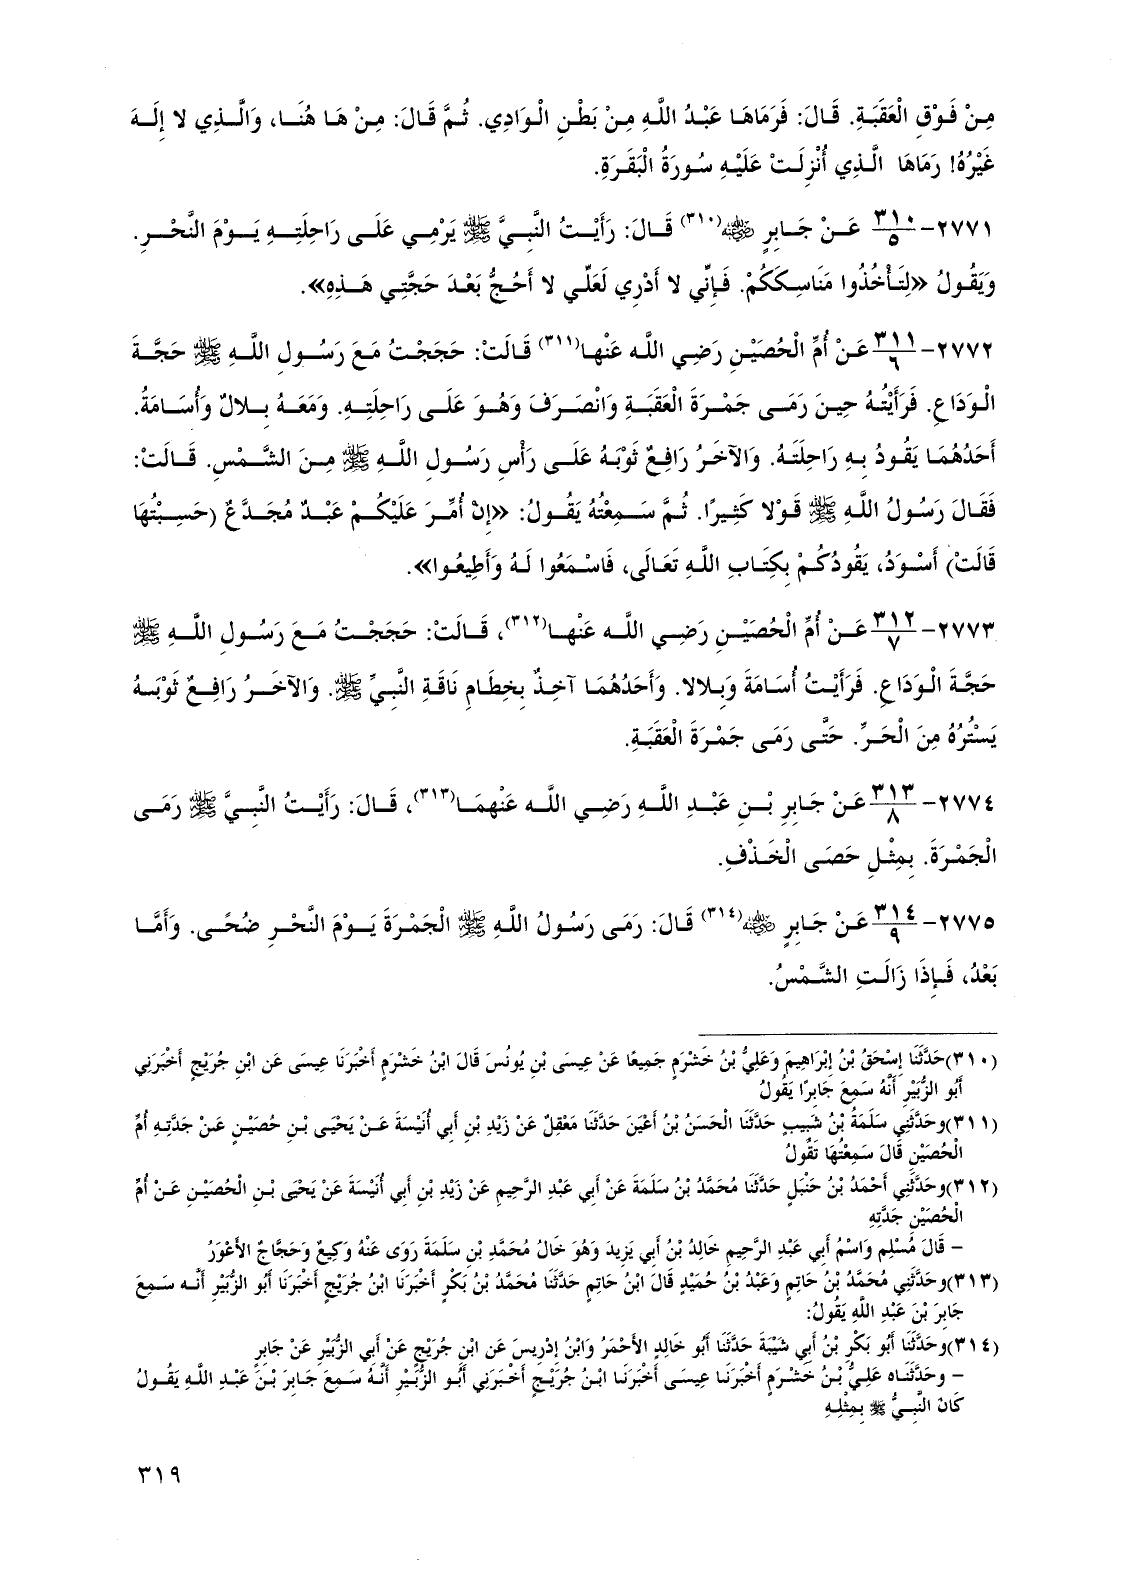 مِنْ فَوْقِ الْعَقَبَةِ. قَالَ: فَرَمَاهَا عَبْدُ اللَّهِ مِنْ بَطْنِ الْوَادِي. ثُمَّ قَالَ: مِنْ هَا هُنَا، وَالَّذِي لا إِلَهَ
غَيْرُهُ! رَمَاهَا الَّذِي أُنْزِلَتْ عَلَيْهِ سُورَةُ الْبَقَرَةِ.
٢٧٧١- ٣١٠/٥ عَنْ جَابِرٍ ﵁(٣١٠) قَالَ: رَأَيْتُ النَّبِيَّ ﷺ يَرْمِي عَلَى رَاحِلَتِهِ يَوْمَ النَّحْرِ.
وَيَقُولُ «لِتَأْخُذُوا مَنَاسِكَكُمْ. فَإِنِّي لا أَدْرِي لَعَلِّي لا أَحُجُّ بَعْدَ حَجَّتِي هَذِهِ».
٢٧٧٢- ٣١١/٦ عَنْ أُمِّ الْحُصَيْنِ رَضِي اللَّه عَنْها(٣١١) قَالَتْ: حَجَجْتُ مَعَ رَسُولِ اللَّهِ ﷺ حَجَّةَ
الْوَدَاعِ. فَرَأَيْتُهُ حِينَ رَمَى جَمْرَةَ الْعَقَبَةِ وَانْصَرَفَ وَهُوَ عَلَى رَاحِلَتِهِ. وَمَعَهُ بِلالٌ وَأُسَامَةُ.
أَحَدُهُمَا يَقُودُ بِهِ رَاحِلَتَهُ. وَالآخَرُ رَافِعٌ ثَوْبَهُ عَلَى رَأْسِ رَسُولِ اللَّهِ ﷺ مِنَ الشَّمْسِ. قَالَتْ:
فَقَالَ رَسُولُ اللَّهِ ﷺ قَوْلا كَثِيرًا. ثُمَّ سَمِعْتُهُ يَقُولُ: «إِنْ أُمِّرَ عَلَيْكُمْ عَبْدٌ مُجَدَّعٌ (حَسِبْتُهَا
قَالَتْ) أَسْوَدُ، يَقُودُكُمْ بِكِتَابِ اللَّهِ تَعَالَى، فَاسْمَعُوا لَهُ وَأَطِيعُوا».
٢٧٧٣- ٣١٢/٧ عَنْ أُمِّ الْحُصَيْنِ رَضِي اللَّه عَنْهَا(٣١٢)، قَالَتْ: حَجَجْتُ مَعَ رَسُولِ اللَّهِ ﷺ
حَجَّةَ الْوَدَاعِ. فَرَأَيْتُ أُسَامَةَ وَبِلالا. وَأَحَدُهُمَا آخِذٌ بِخِطَامِ نَاقَةِ النَّبِيِّ ﷺ. وَالآخَرُ رَافِعٌ ثَوْبَهُ
يَسْتُرُهُ مِنَ الْحَرِّ. حَتَّى رَمَى جَمْرَةَ الْعَقَبَةِ.
٢٧٧٤- ٣١٣/٨ عَنْ جَابِرِ بْنِ عَبْدِ اللَّهِ رَضِي اللَّه عَنْهمَا(٣١٣)، قَالَ: رَأَيْتُ النَّبِيَّ ﷺ رَمَى
الْجَمْرَةَ. بِمِثْلِ حَصَى الْخَذْفِ.
٢٧٧٥- ٣١٤/٩ عَنْ جَابِرٍ ﵁(٣١٤) قَالَ: رَمَى رَسُولُ اللَّهِ ﷺ الْجَمْرَةَ يَوْمَ النَّحْرِ ضُحًى. وَأَمَّا
بَعْدُ، فَإِذَا زَالَتِ الشَّمْسُ.
(٣١٠)حَدَّثَنَا إِسْحَقُ بْنُ إِبْرَاهِيمَ وَعَلِيُّ بْنُ خَشْرَمٍ جَمِيعًا عَنْ عِيسَى بْنِ يُونُسَ قَالَ ابْنُ خَشْرَمٍ أَخْبَرَنَا عِيسَى عَنِ ابْنِ جُرَيْجٍ أَخْبَرَنِي
أَبُو الزُّبَيْرِ أَنَّهُ سَمِعَ جَابِرًا يَقُولُ
(٣١١)وحَدَّثَنِي سَلَمَةُ بْنُ شَبِيبٍ حَدَّثَنَا الْحَسَنُ بْنُ أَعْيَنَ حَدَّثَنَا مَعْقِلٌ عَنْ زَيْدِ بْنِ أَبِي أُنَيْسَةَ عَنْ يَحْيَى بْنِ حُصَيْنٍ عَنْ جَدَّتِهِ أُمِّ
الْحُصَيْنِ قَالَ سَمِعْتُهَا تَقُولُ
(٣١٢)وحَدَّثَنِي أَحْمَدُ بْنُ حَنْبَلٍ حَدَّثَنَا مُحَمَّدُ بْنُ سَلَمَةَ عَنْ أَبِي عَبْدِ الرَّحِيمِ عَنْ زَيْدِ بْنِ أَبِي أُنَيْسَةَ عَنْ يَحْيَى بْنِ الْحُصَيْنِ عَنْ أُمِّ
الْحُصَيْنِ جَدَّتِهِ
– قَالَ مُسْلِم وَاسْمُ أَبِي عَبْدِ الرَّحِيمِ خَالِدُ بْنُ أَبِي يَزِيدَ وَهُوَ خَالُ مُحَمَّدِ بْنِ سَلَمَةَ رَوَى عَنْهُ وَكِيعٌ وَحَجَّاجٌ الأَعْوَرُ
(٣١٣)وحَدَّثَنِي مُحَمَّدُ بْنُ حَاتِمٍ وَعَبْدُ بْنُ حُمَيْدٍ قَالَ ابْنُ حَاتِمٍ حَدَّثَنَا مُحَمَّدُ بْنُ بَكْرٍ أَخْبَرَنَا ابْنُ جُرَيْجٍ أَخْبَرَنَا أَبُو الزُّبَيْرِ أَنَّه سَمِعَ
جَابِرَ بْنَ عَبْدِ اللَّهِ يَقُولُ:
(٣١٤)وحَدَّثَنَا أَبُو بَكْرِ بْنُ أَبِي شَيْبَةَ حَدَّثَنَا أَبُو خَالِدٍ الأَحْمَرُ وَابْنُ إِدْرِيسَ عَنِ ابْنِ جُرَيْجٍ عَنْ أَبِي الزُّبَيْرِ عَنْ جَابِرٍ
– وحَدَّثَنَاه عَلِيُّ بْنُ خَشْرَمٍ أَخْبَرَنَا عِيسَى أَخْبَرَنَا ابْنُ جُرَيْجٍ أَخْبَرَنِي أَبُو الزُّبَيْرِ أَنَّهُ سَمِعَ جَابِرَ بْنَ عَبْدِ اللَّهِ يَقُولُ
كَانَ النَّبِيُّ ﷺ بِمِثْلِهِ
٣١٩